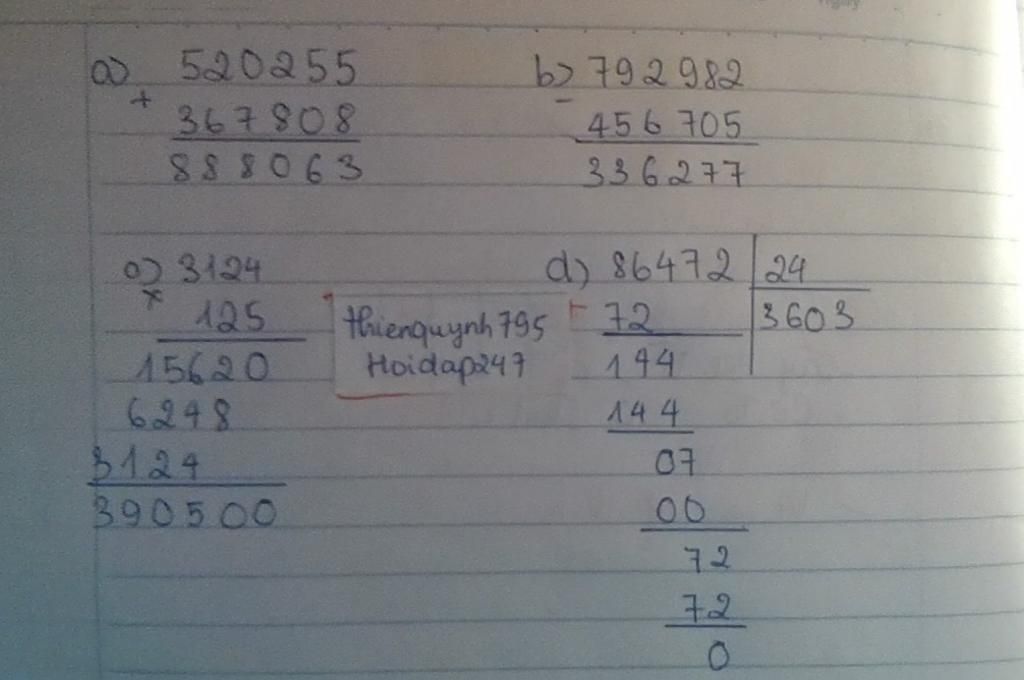 a) 520255
+
367808
888063
b) 792982
-
456705
336277
c) 3124
x
125
15620
6248
3124
390500
thienquynh795
Hoidap247
d) 86472 24
72 3603
144
144
07
00
72
72
0